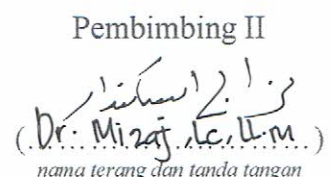 Pembimbing II
(Dr. Mizaj, Lc, LL.M)
nama terang dan tanda tangan